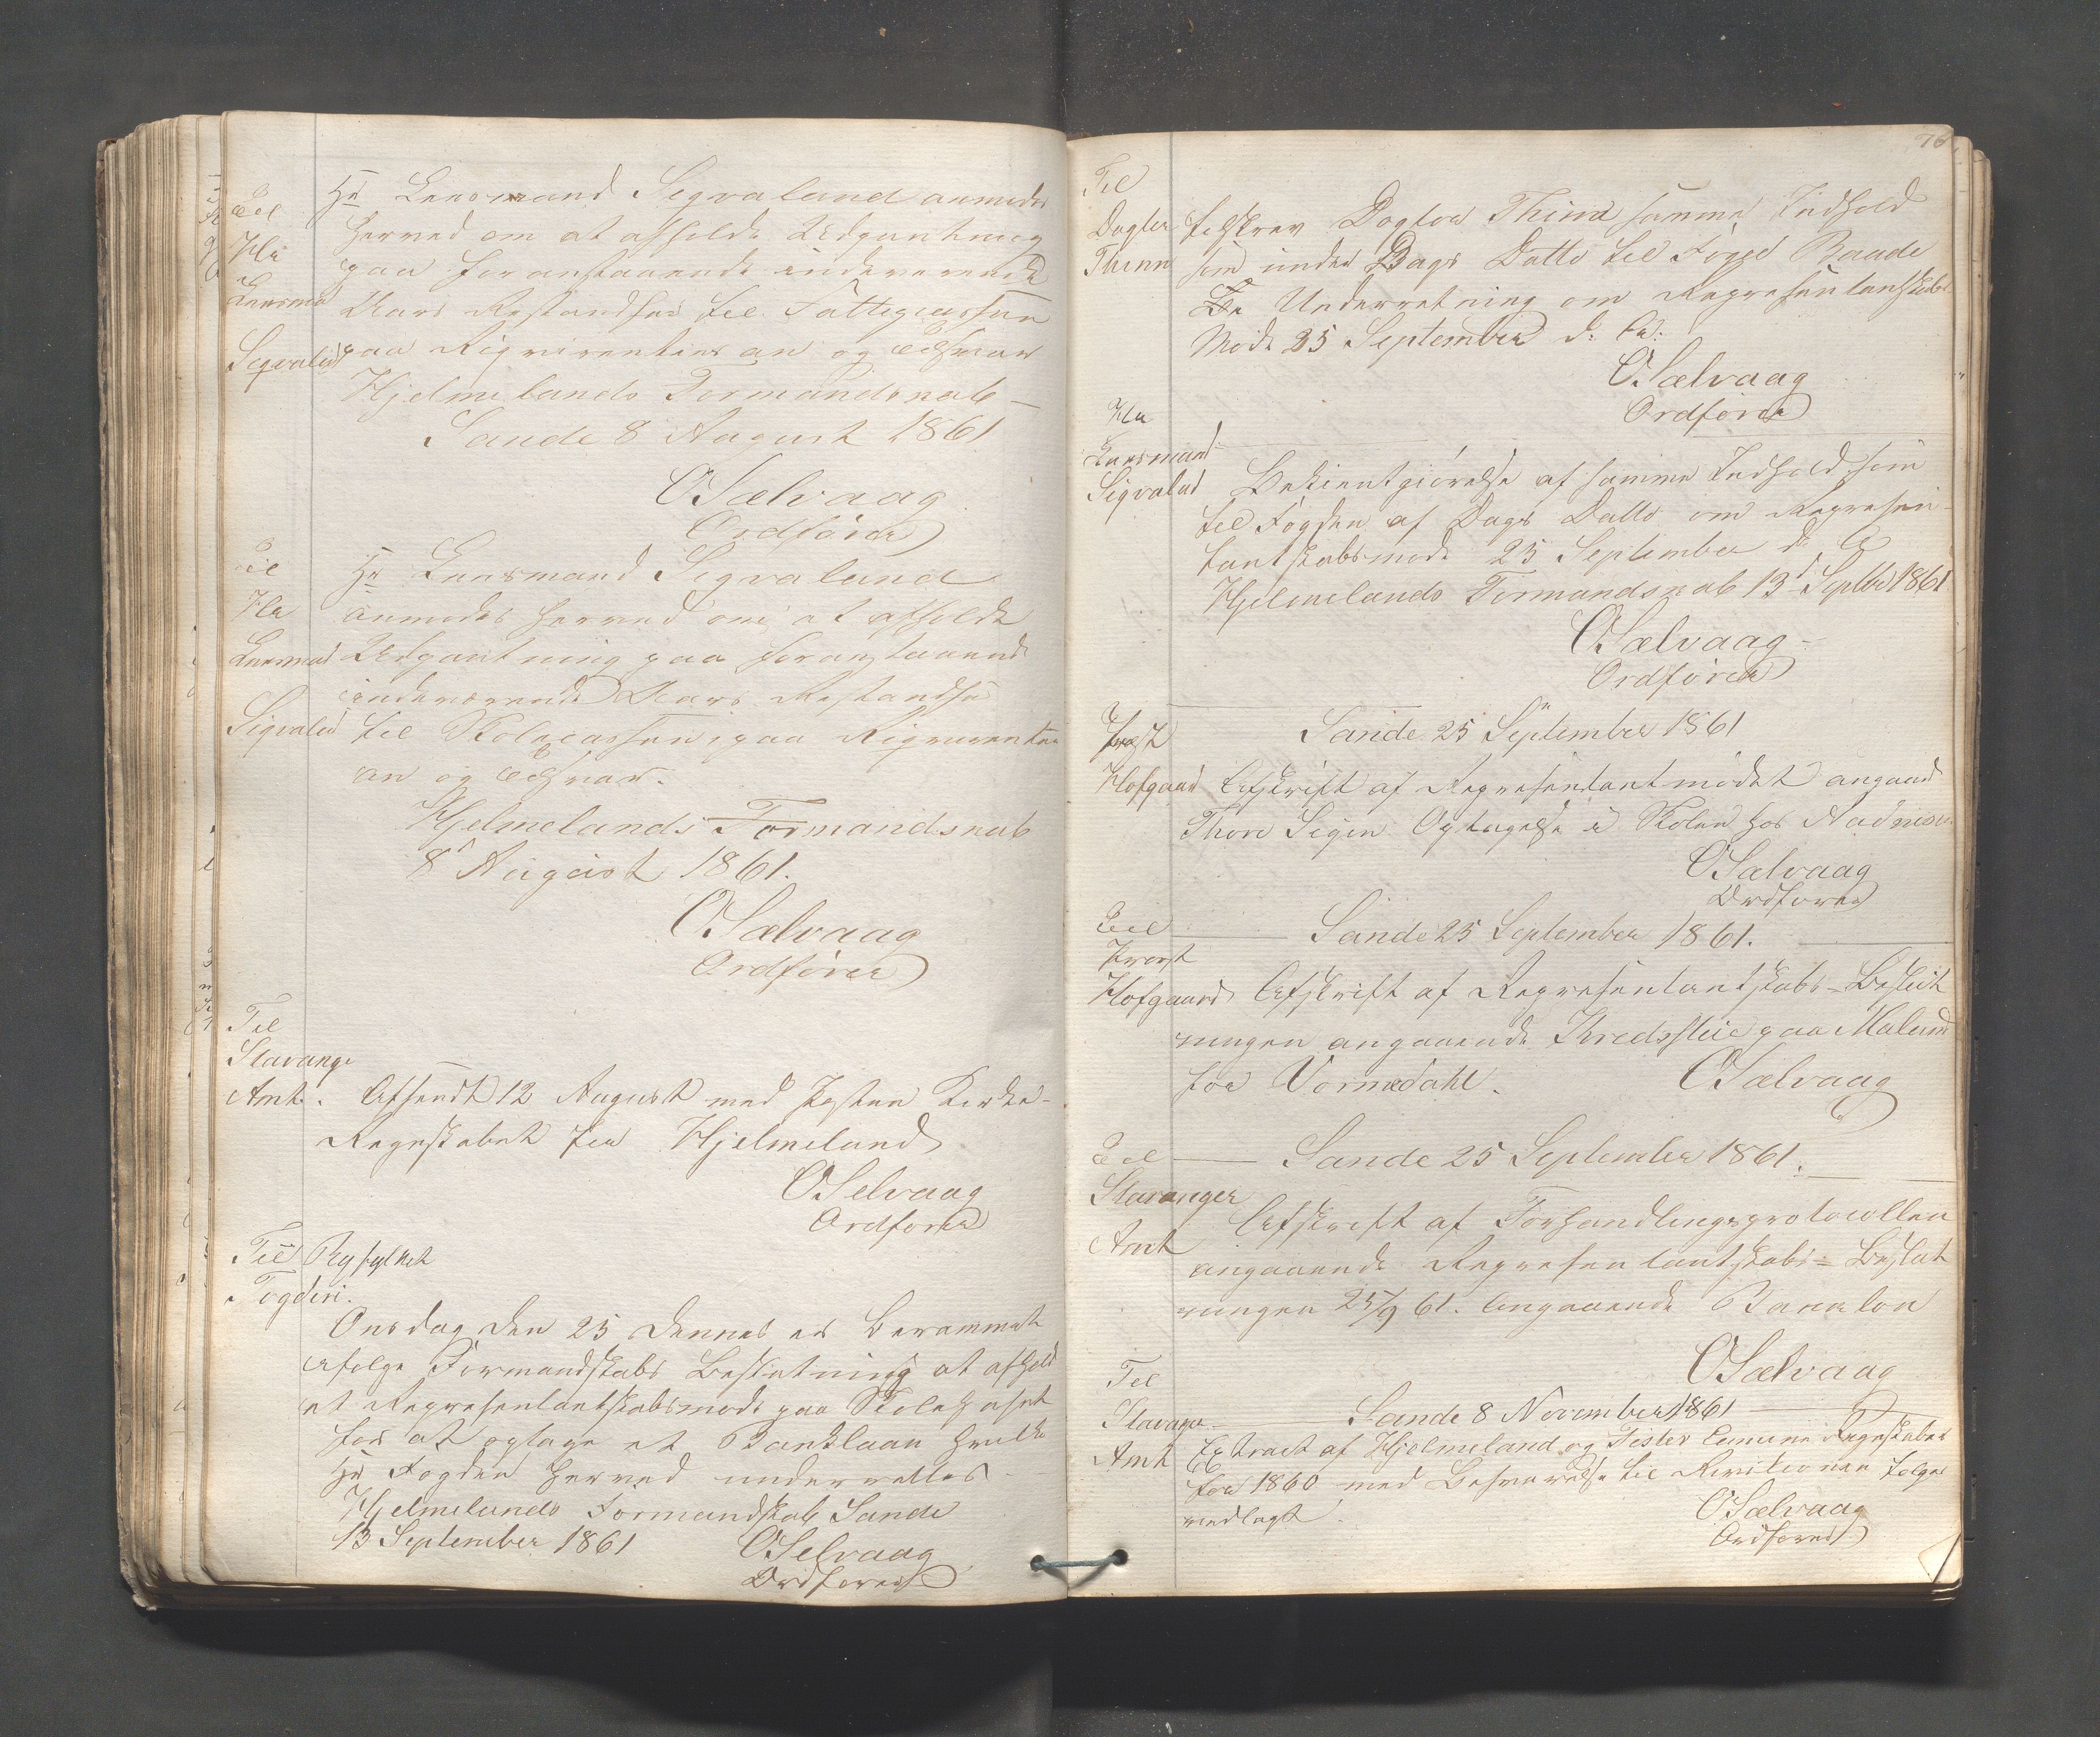 Til
Hr
Lensmd
Sigvalad
Hr Lensmand Sigvaland anmodes
herved om at afholde Udpantning
paa foranstaaende indeværende
Aars Restandser til Fattigcassen
paa Rigvirentens an og tilsvar
Hjelmelands Formandsnab
Sande 8 August 1861
OSælvaag
Ordfører
Til
Hr
Lensmad
Sigvalad
Hr Lensmand Sigvaland
anmodes herved om at afholde
Udpantning paa foranstaaende
indeværende Aars Restandse
til Skolecassen, paa Rigvirenten
an og tilsvar.
Hjelmelands Formandsnab
8de August 1861.
OSælvaag
Ordfører
Til
Stavange
Amt.
Afsendt 12 August med Posten Kirke-
Regnskabet for Hjelmeland
OSelvaag
Ordfører
Til Ryfylket
Fogderi.
Onsdag den 25 dennes er berammet
ifølge Formandskabs Beslutning at afhold
et Representantskabsmøde paa Skolehuset
for at optage et Banklaan hvilke
Hr Fogden herved underrettes
Hjelmelands Formandskab Sande
13 September 1861
OSelvaag
Ordfører
76
Til
Dogter
Thinn
tilskrev Dogtor Thinn samme Indhold
som under Dags Datto til Foged Baade
Underretning om Representanskabs
Møde 25 September d: A:
OSælvaag
Ordfører
Hr
Lensmand
Sigvalad
Bekientgiörelse af samme Indhold som
til Fogden af Dags Datto om Represen-
tantskabsmøde 25 September d. A
Hjelmelands Formandsnab 13de Septbr 1861
OSælvaag
Ordfører
Provst
Hofgaard
Sande 25 September 1861
Afskrift af Representantmødet angaaend
Thore Optagelse i Skolen hos
OSælvaag
Ordfører
Til
Provst
Hofgaard
Sande 25 September 1861.
Afskrift af Representantskabs-Beslut
ningen angaaende Kredsstue paa Maland
for Vormedahl.
OSælvaag
Til
Stavanger
Amt
Sande 25 September 1861.
Afskrift af Forhandlingsprotocollen
angaaende Representantskabs-Beslut
ningen 25/9 61. Angaaende Banklon
OSælvaag
Til
Stavange
Amt
Sande 8 November 1861
Extract af Hjelmeland og Fister Comune Regnskaber
for 1860 med Besvarelse til Revisionen følger
vedlagt.
OSælvaag
Ordfører